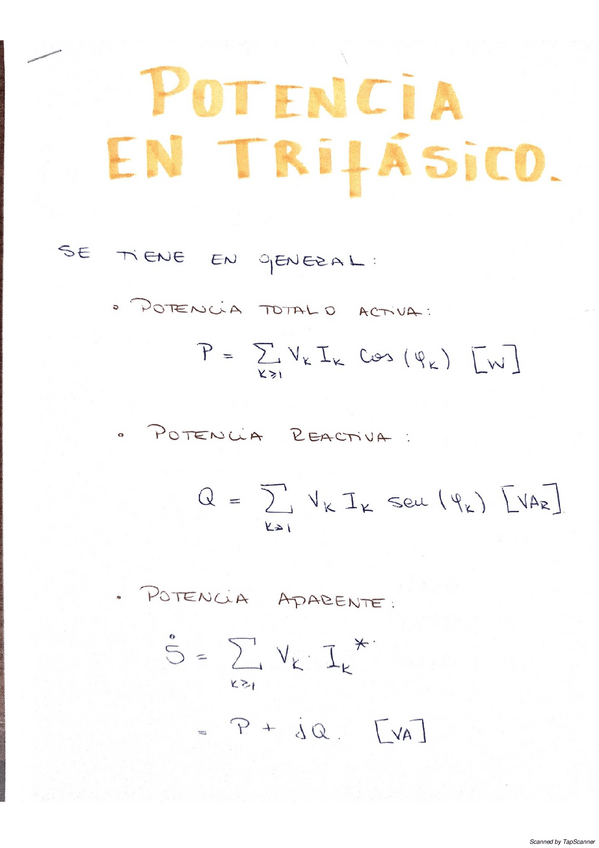 POTENCIA
EN TRIFÁSICO.
SE TIENE EN GENERAL:
• POTENCIA TOTAL O ACTIVA:
P = Σ V_K I_K cos (φ_K) [W]
K≥1
• POTENCIA REACTIVA:
Q = Σ V_K I_K sen (φ_K) [VAR]
K≥1
• POTENCIA APARENTE:
Ṡ = Σ V_K · I_K*
K≥1
= P + jQ. [VA]
Scanned by TapScanner